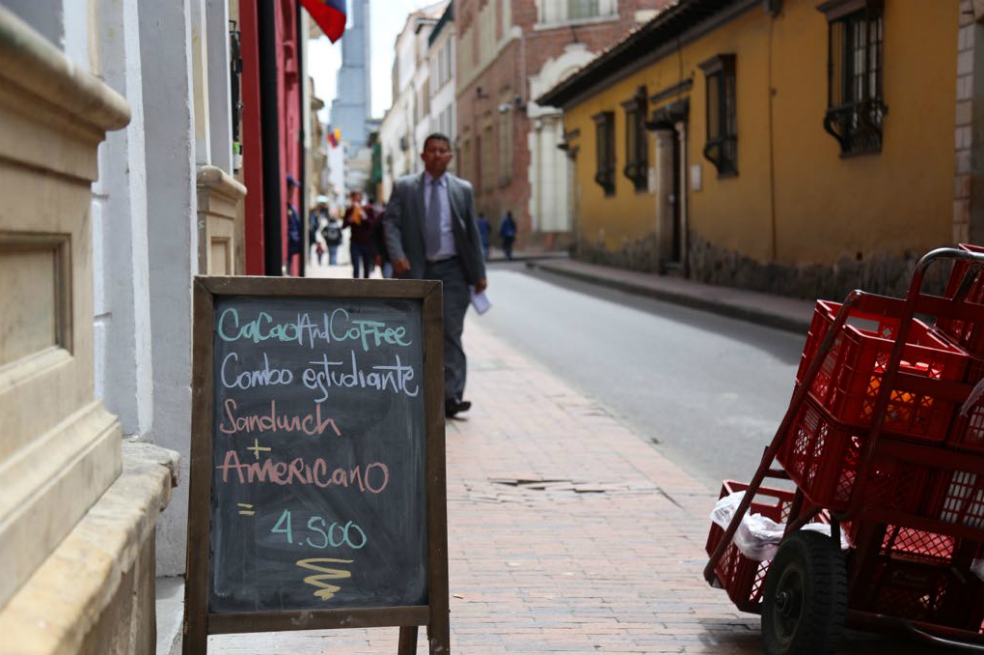 CaCaoAndCoffee
Combo estudiante
Sandwich
+
Americano
=
4.500